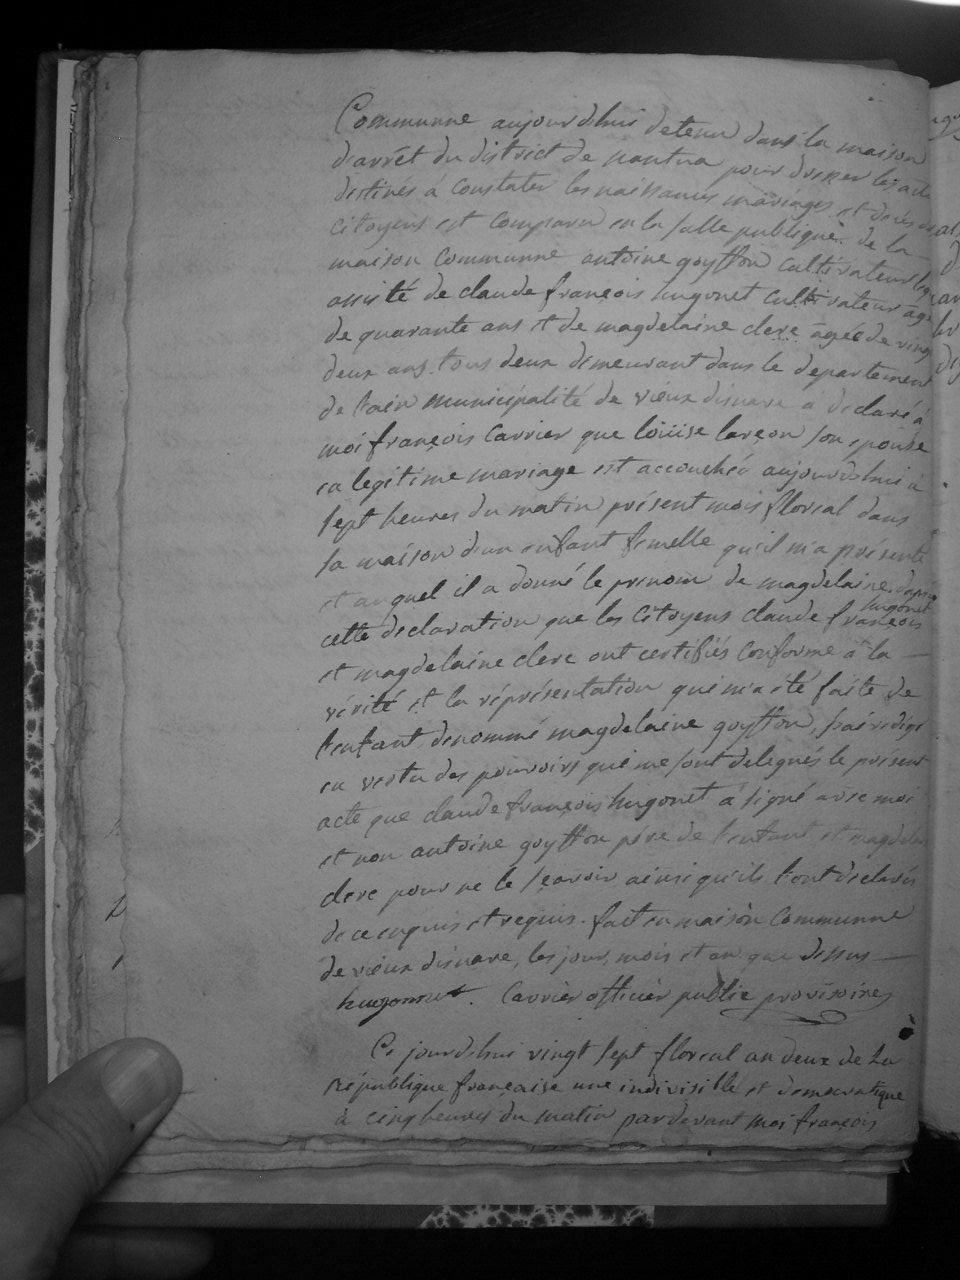 Communne aujourdhui detenu dans la maison
darrét du district de nantua pour dresser les acte
destinés à constater les naissances mariages et décés des
citoyens est comparu en la salle publique de la
maison communne antoine goyffon cultivateur
assisté de claude françois hugonet cultivateur âgé
de quarante ans et de magdelaine clerc âgée de vingt
deux ans tous deux demeurant dans le departement
de l'ain municipalité de vieux disnave a declaré à
moi françois Carrier que loüise larçon son epouse
en legitime mariage est accouchée aujourdhui à
sept heures du matin présent mois floreal dans
sa maison d'un enfant femelle qu'il m'a présenté
et auquel il a donné le prenom de magdelaine. d'après
cette declaration que les citoyens claude françois hugonet
et magdelaine clerc ont certifiés conforme à la
vérité et la réprésentation qui m'a été faite de
l'enfant denommé magdelaine goyffon, j'ai redigé
en vertu des pouvoirs qui me sont delegués le présent
acte que claude françois hugonet a signé avec moi
et non antoine goyffon pere de l'enfant et magdelaine
clerc pour ne le sçavoir ainsi qu'ils l'ont declarés
de ce enquis et requis. fait en maison communne
de vieux disnave, les jour, mois et an que dessus
hugonnet. Carrier officier public provisoire
Ce jourdhui vingt sept floreal an deux de la
république française une indivisible et democratique
à cinq heures du matin pardevant moi françois